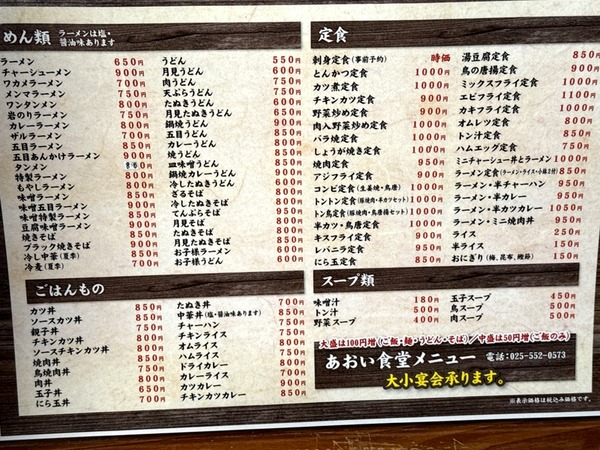 めん類 ラーメンは塩・醤油味あります
ラーメン 650円
チャーシューメン 900円
ワカメラーメン 700円
メンマラーメン 750円
ワンタンメン 800円
岩のりラーメン 750円
カレーラーメン 800円
ザルラーメン 700円
五目ラーメン 850円
五目あんかけラーメン 900円
タンメン
特製ラーメン 800円
もやしラーメン 800円
味噌ラーメン 850円
味噌五目ラーメン 900円
味噌特製ラーメン 850円
豆腐味噌ラーメン 900円
焼きそば 900円
ブラック焼きそば 900円
冷し中華(夏季) 850円
冷麦(夏季) 700円
うどん 550円
月見うどん 600円
肉うどん 700円
天ぷらうどん 750円
たぬきうどん 600円
月見たぬきうどん 650円
鍋焼うどん 900円
五目うどん 850円
カレーうどん 800円
焼うどん 850円
皿味噌うどん 850円
鍋焼カレーうどん
冷したぬきうどん 600円
ざるそば
冷したぬきそば
てんぷらそば
月見そば
たぬきそば
月見たぬきそば
お子様ラーメン
お子様うどん
定食
刺身定食(事前予約) 時価
とんかつ定食 1000円
カツ煮定食 1000円
チキンカツ定食 900円
野菜炒め定食 900円
肉入野菜炒め定食 1000円
バラ焼定食 1000円
しょうが焼き定食 1000円
焼肉定食 950円
アジフライ定食 900円
コンビ定食(生姜焼・鳥唐) 1000円
トントン定食(豚焼肉・半カツセット) 1000円
トン鳥定食(豚焼肉・鳥唐揚セット) 1000円
半カツ・鳥唐定食 1000円
キスフライ定食 900円
レバニラ定食 950円
にら玉定食 850円
湯豆腐定食 850円
鳥の唐揚定食 900円
ミックスフライ定食 1000円
エビフライ定食 1100円
カキフライ定食 1000円
オムレツ定食 800円
トン汁定食 850円
ハムエッグ定食 750円
ミニチャーシュー丼とラーメン 1000円
ラーメン定食(ラーメン・ライス・小鉢2付) 850円
ラーメン・半チャーハン 950円
ラーメン・半カレー 950円
ラーメン・半カツカレー 1050円
ラーメン・ミニ焼肉丼 950円
ライス 250円
半ライス 150円
おにぎり(梅、昆布、鰹節) 150円
ごはんもの
カツ丼 850円
ソースカツ丼 850円
親子丼 750円
チキンカツ丼 800円
ソースチキンカツ丼 800円
焼肉丼 850円
鳥焼肉丼 850円
肉丼 850円
玉子丼 650円
にら玉丼 700円
たぬき丼 700円
中華丼(塩・醤油味あります) 850円
チャーハン 750円
チキンライス 750円
オムライス 800円
ハムライス 750円
ドライカレー 800円
カレーライス 700円
カツカレー 900円
チキンカツカレー 850円
スープ類
味噌汁 180円
トン汁 500円
野菜スープ 400円
玉子スープ 450円
鳥スープ 500円
肉スープ 500円
大盛は100円増(ご飯・麺・うどん・そば)/中盛は50円増(ご飯のみ)
あおい食堂メニュー 電話:025-552-0573
大小宴会承ります。
※表示価格は税込み価格です。